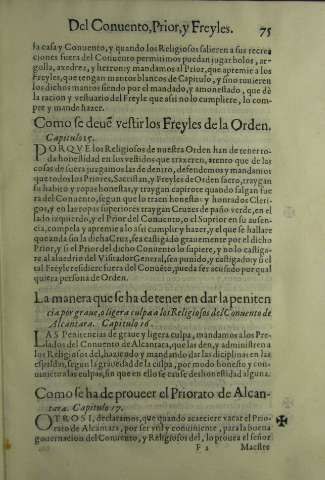 Del Conuento, Prior, y Freyles. 75
sa casa y Conuento, y quando los Religiosos salieren a sus recrea
ciones fuera del Conuento permitimos puedan jugar bolos, ar-
golla, axedrez, y herron; y mandamos al Prior, que apremie a los
Freyles, que tengan mantos blancos de Capitulo, y sino tuuieren
los dichos mantos siendo por el mandado, y amonestado, que dē
la racion y vestuario del Freyle que assi no lo cumpliere, lo com-
pre y mande hazer.
Como se deuē vestir los Freyles de la Orden.
Capitulo 15.
PORQVE los Religiosos de nuestra Orden han de tener to-
da honestidad en los vestidos que traxeren, atento que de las
cosas de fuera juzgamos las de dentro, defendemos y mandamos
que todos los Priores, Sacristan, y Freyles de Orden sacro, traygan
su habito y ropas honestas, y traygan capirote quando salgan fue
ra del Conuento, segun que lo traen honestos y honrados Cleri-
gos, y en las ropas superiores traygan Cruzes de paño verde, en el
lado izquierdo, y el Prior del Conuento, o el Soprior en su ausen-
cia, compela y apremie a lo assi cumplir y hazer, y el que se hallare
que anda sin la dicha Cruz, sea castigado grauemente por el dicho
Prior, y si el Prior del dicho Conuento lo supiere, y no lo castiga-
re al aluedrio del Visitador General, sea punido, y castigado: y si el
tal Freyle residiere fuera del Conuēto, pueda ser acusado por qual
quiera persona de Orden.
La manera que se ha de tener en dar la peniten
cia por graue, o ligera culpa a los Religiosos del Conuento de
Alcantara. Capitulo 16.
LAS Penitencias de graue y ligera culpa, mandamos a los Pre-
lados del Conuento de Alcantara, que las den, y administren a
los Religiosos del, haziendo y mandando dar las diciplinas en las
espaldas, segun la grauedad de la culpa, por modo honesto y con-
uiniente a las culpas, sin que en ello se cause deshonestidad alguna.
Como se ha de proueer el Priorato de Alcan-
tara. Capitulo 17.
OTROSI, declaramos, que quando acaeciere vacar el Prio-
rato de Alcantara, por ser vtil y conuiniente, para la buena
gouernacion del Conuento, y Religiosos del, lo prouea el señor
F 2 Maestre